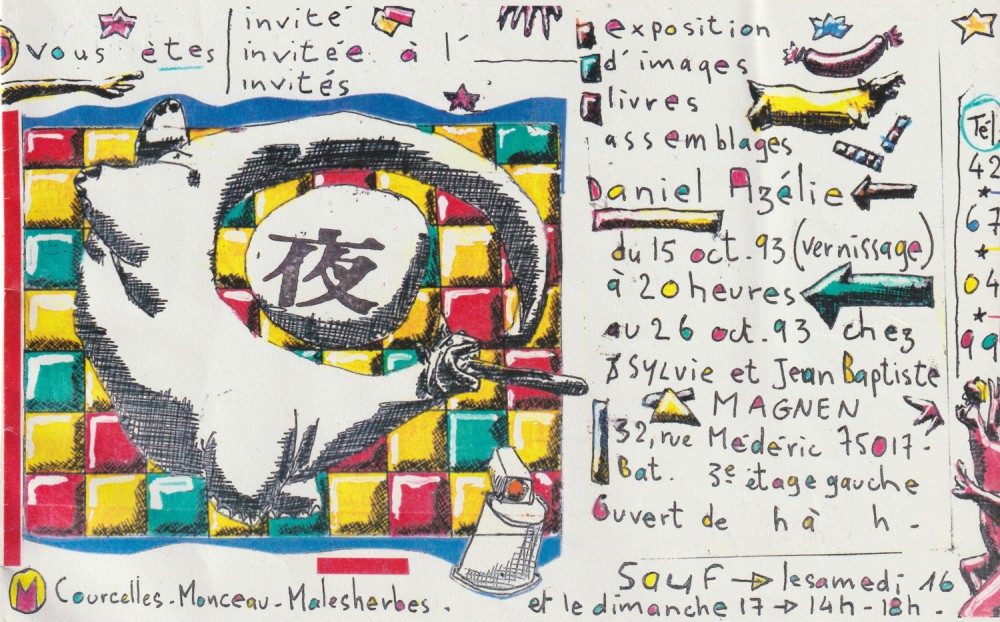 vous êtes
invité
invitée à l'
invités
exposition
d'images
livres
assemblages
Daniel Azélie
du 15 oct. 93 (vernissage)
à 20 heures
au 26 oct. 93 chez
Sylvie et Jean Baptiste
MAGNEN
32, rue Médéric 75017.
Bat. 3e étage gauche
Ouvert de h à h.
Sauf → le samedi 16
et le dimanche 17 → 14h - 18h.
Tél
42
67
04
99
夜
M Courcelles - Monceau - Malesherbes.